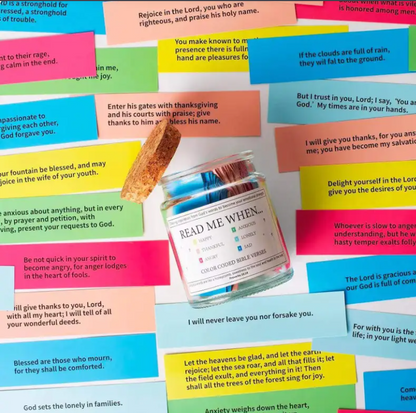 is a stronghold for
ressed, a stronghold
of trouble.
Rejoice in the Lord, you who are
righteous, and praise his holy name.
is honored among men
nt to their rage,
g calm in the end.
in me,
joy.
You make known to m
presence there is fulln
hand are pleasures fo
If the clouds are full of rain,
they will fall to the ground.
passionate to
rgiving each other,
God forgave you.
Enter his gates with thanksgiving
and his courts with praise; give
thanks to him a bless his name.
But I trust in you, Lord; I say, 'You a
God.' My times are in your hands.
I will give you thanks, for you an
me; you have become my salvatio
our fountain be blessed, and may
joice in the wife of your youth.
Delight yourself in the Lord
give you the desires of yo
e anxious about anything, but in every
, by prayer and petition, with
ving, present your requests to God.
Whoever is slow to anger
understanding, but he w
hasty temper exalts folly
READ ME WHEN...
HAPPY
THANKFUL
ANGRY
ANXIOUS
LONELY
SAD
COLOR CODED BIBLE VERSES
Be not quick in your spirit to
become angry, for anger lodges
in the heart of fools.
The Lord is gracious a
our God is full of com
ill give thanks to you, Lord,
with all my heart; I will tell of all
your wonderful deeds.
I will never leave you nor forsake you.
For with you is the
life; in your light we
Blessed are those who mourn,
for they shall be comforted.
Let the heavens be glad, and let the earth
rejoice; let the sea roar, and all that fills it; let
the field exult, and everything in it! Then
shall all the trees of the forest sing for joy.
God sets the lonely in families.
Anxiety weighs down the heart,
Com
heav